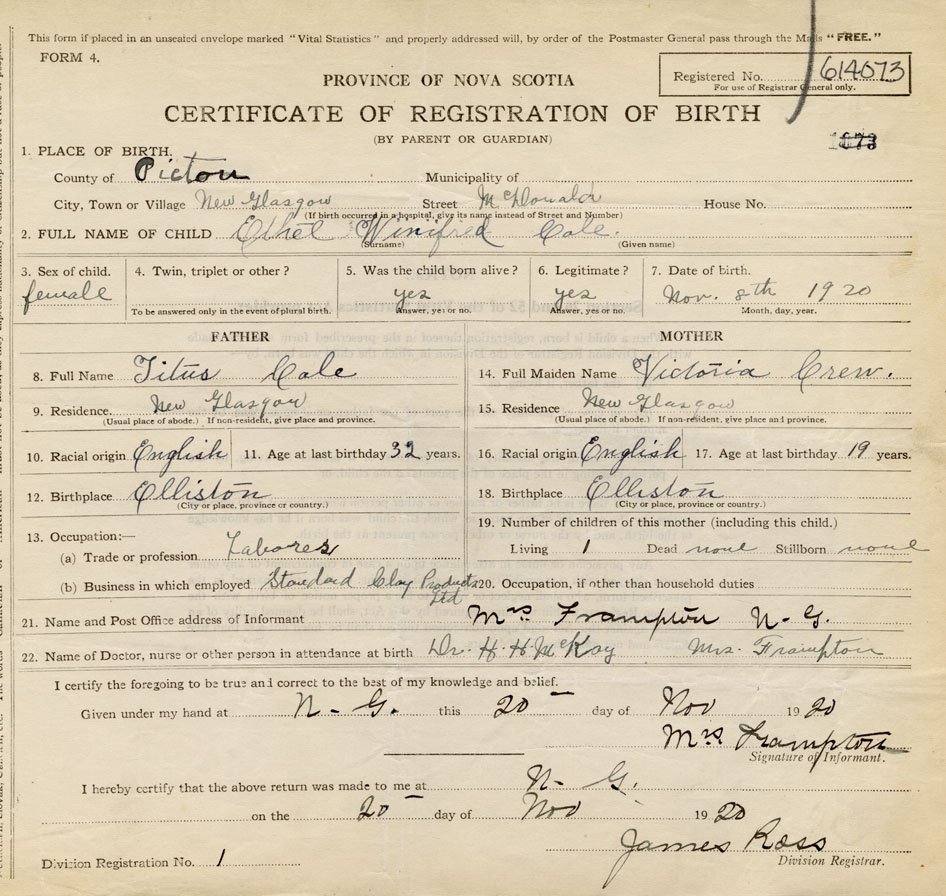 This form if placed in an unsealed envelope marked "Vital Statistics" and properly addressed will, by order of the Postmaster General pass through the Mails "FREE."
FORM 4.
PROVINCE OF NOVA SCOTIA
Registered No. 614073
For use of Registrar General only.
CERTIFICATE OF REGISTRATION OF BIRTH
(BY PARENT OR GUARDIAN)
1. PLACE OF BIRTH.
County of Pictou Municipality of
City, Town or Village New Glasgow Street McDonald House No.
(If birth occurred in a hospital, give its name instead of Street and Number)
2. FULL NAME OF CHILD Ethel Winifred Cole.
(Surname) (Given name)
3. Sex of child. 4. Twin, triplet or other? 5. Was the child born alive? 6. Legitimate? 7. Date of birth.
female yes yes Nov. 8th 1920
To be answered only in the event of plural birth. Answer, yes or no. Answer, yes or no. Month, day, year.
FATHER MOTHER
8. Full Name Titus Cole 14. Full Maiden Name Victoria Crew.
9. Residence. New Glasgow 15. Residence New Glasgow
(Usual place of abode.) If non-resident, give place and province. (Usual place of abode.) If non-resident, give place and province.
10. Racial origin English 11. Age at last birthday 32 years. 16. Racial origin English 17. Age at last birthday 19 years.
12. Birthplace Elliston 18. Birthplace Elliston
(City or place, province or country.) (City or place, province or country.)
13. Occupation:— 19. Number of children of this mother (including this child.)
(a) Trade or profession Laborer Living 1 Dead none Stillborn none
(b) Business in which employed Standard Clay Products Ltd 20. Occupation, if other than household duties
21. Name and Post Office address of Informant Mrs Frampton N-G.
22. Name of Doctor, nurse or other person in attendance at birth Dr. H. H McKay Mrs. Frampton
I certify the foregoing to be true and correct to the best of my knowledge and belief.
Given under my hand at N-G. this 20 day of Nov 1920
Mrs Frampton
Signature of Informant.
I hereby certify that the above return was made to me at N-G.
on the 20 day of Nov 1920
James Ross
Division Registration No. 1 Division Registrar.